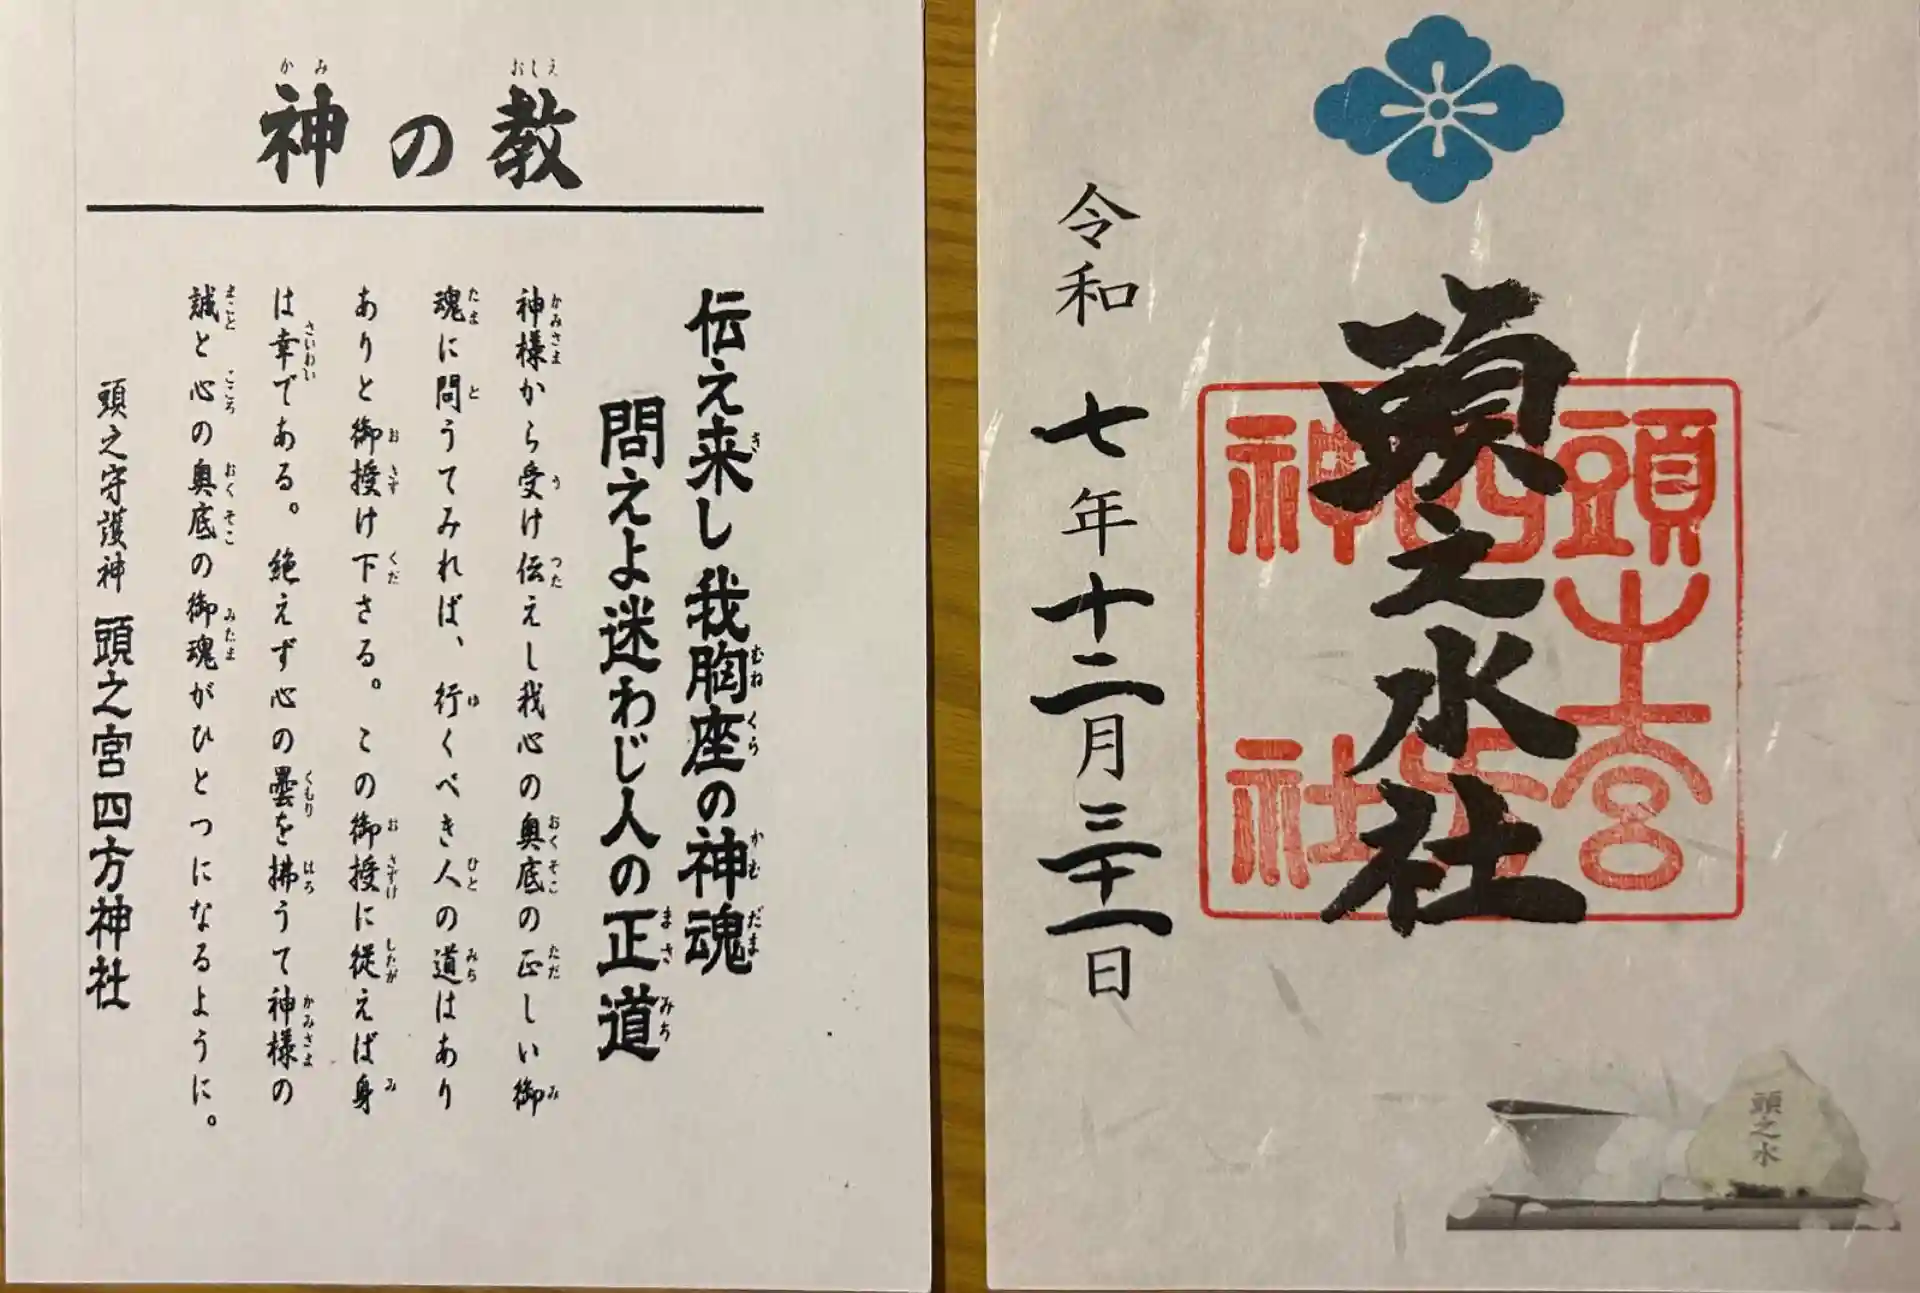 神の教
伝え来し我胸座の神魂
問えよ迷わじ人の正道
神様から受け伝えし我心の奥底の正しい御
魂に問うてみれば、行くべき人の道はあり
ありと御授け下さる。この御授に従えば身
は幸である。絶えず心の曇を拂うて神様の
誠と心の奥底の御魂がひとつになるように。
頭之守護神 頭之宮四方神社
頭之水社
頭之宮
四方
神社
令和七年十二月三十一日
頭之水